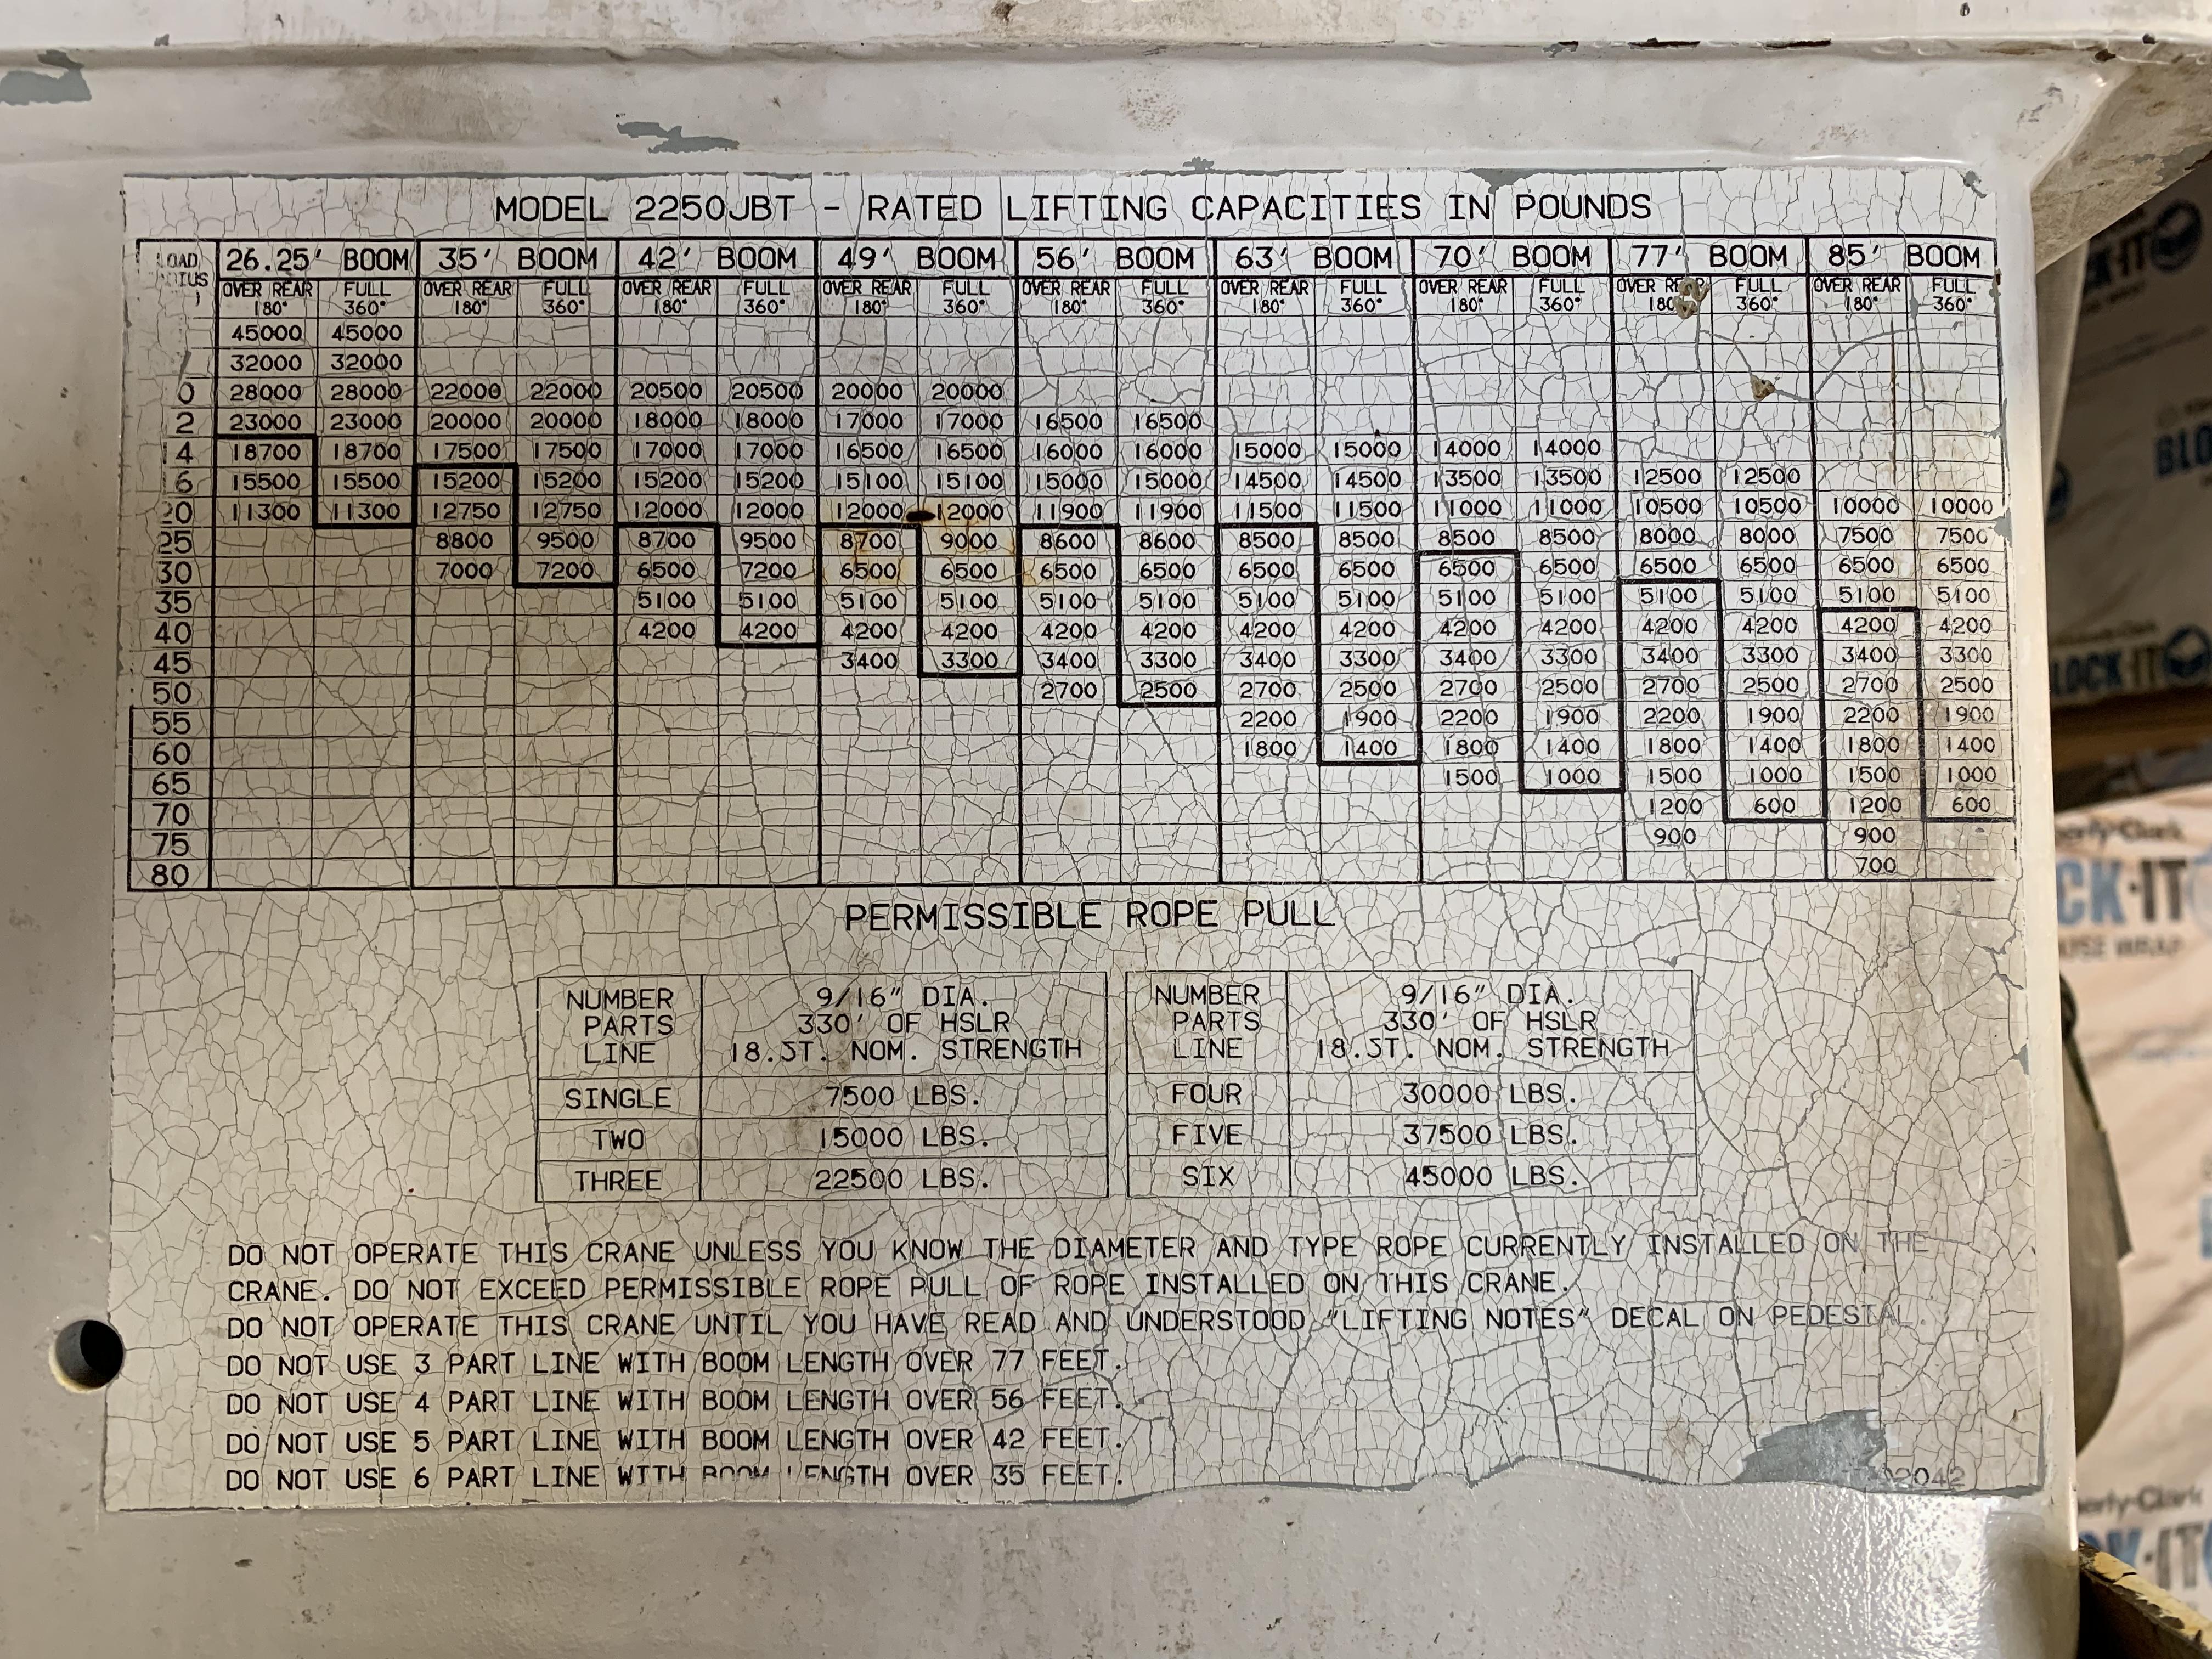 MODEL 2250JBT - RATED LIFTING CAPACITIES IN POUNDS
26.25' BOOM 35' BOOM 42' BOOM 49' BOOM 56' BOOM 63' BOOM 70' BOOM 77' BOOM 85' BOOM
OVER REAR FULL OVER REAR FULL OVER REAR FULL OVER REAR FULL OVER REAR FULL OVER REAR FULL OVER REAR FULL OVER FULL OVER REAR FULL
180° 360° 180° 360° 180° 360° 180° 360° 180° 360° 180° 360° 180° 360° 180 360° 180° 360°
45000 45000
32000 32000
0 28000 28000 22000 22000 20500 20500 20000 20000
2 23000 23000 20000 20000 18000 18000 17000 17000 16500 16500
14 18700 18700 17500 17500 17000 17000 16500 16500 16000 16000 15000 15000 14000 14000
16 15500 15500 15200 15200 15200 15200 15100 15100 15000 15000 14500 14500 13500 13500 12500 12500
20 11300 11300 12750 12750 12000 12000 12000 12000 11900 11900 11500 11500 11000 11000 10500 10500 10000 10000
25 8800 9500 8700 9500 8700 9000 8600 8600 8500 8500 8500 8500 8000 8000 7500 7500
30 7000 7200 6500 7200 6500 6500 6500 6500 6500 6500 6500 6500 6500 6500 6500 6500
35 5100 5100 5100 5100 5100 5100 5100 5100 5100 5100 5100 5100 5100 5100
40 4200 4200 4200 4200 4200 4200 4200 4200 4200 4200 4200 4200 4200 4200
45 3400 3300 3400 3300 3400 3300 3400 3300 3400 3300 3400 3300
50 2700 2500 2700 2500 2700 2500 2700 2500 2700 2500
55 2200 1900 2200 1900 2200 1900 2200 1900
60 1800 1400 1800 1400 1800 1400 1800 1400
65 1500 1000 1500 1000 1500 1000
70 1200 600 1200 600
75 900 900
80 700
PERMISSIBLE ROPE PULL
NUMBER PARTS LINE 9/16" DIA. 330' OF HSLR 18.5T. NOM. STRENGTH
SINGLE 7500 LBS.
TWO 15000 LBS.
THREE 22500 LBS.
NUMBER PARTS LINE 9/16" DIA. 330' OF HSLR 18.5T. NOM. STRENGTH
FOUR 30000 LBS.
FIVE 37500 LBS.
SIX 45000 LBS.
DO NOT OPERATE THIS CRANE UNLESS YOU KNOW THE DIAMETER AND TYPE ROPE CURRENTLY INSTALLED ON THE
CRANE. DO NOT EXCEED PERMISSIBLE ROPE PULL OF ROPE INSTALLED ON THIS CRANE.
DO NOT OPERATE THIS CRANE UNTIL YOU HAVE READ AND UNDERSTOOD "LIFTING NOTES" DECAL ON PEDESTAL.
DO NOT USE 3 PART LINE WITH BOOM LENGTH OVER 77 FEET.
DO NOT USE 4 PART LINE WITH BOOM LENGTH OVER 56 FEET.
DO NOT USE 5 PART LINE WITH BOOM LENGTH OVER 42 FEET.
DO NOT USE 6 PART LINE WITH BOOM LENGTH OVER 35 FEET.